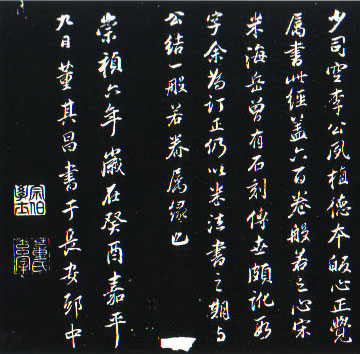 少司空李公夙植德本皈心正覺
属書此經蓋六百卷般若之心宋
米海岳曾有石刻傳世頗訛數
字余為訂正仍以米法書之期与
公結一般若眷屬緣也
崇禎六年歲在癸酉嘉平
九日董其昌書于長安邸中
宗伯學士
董氏玄宰